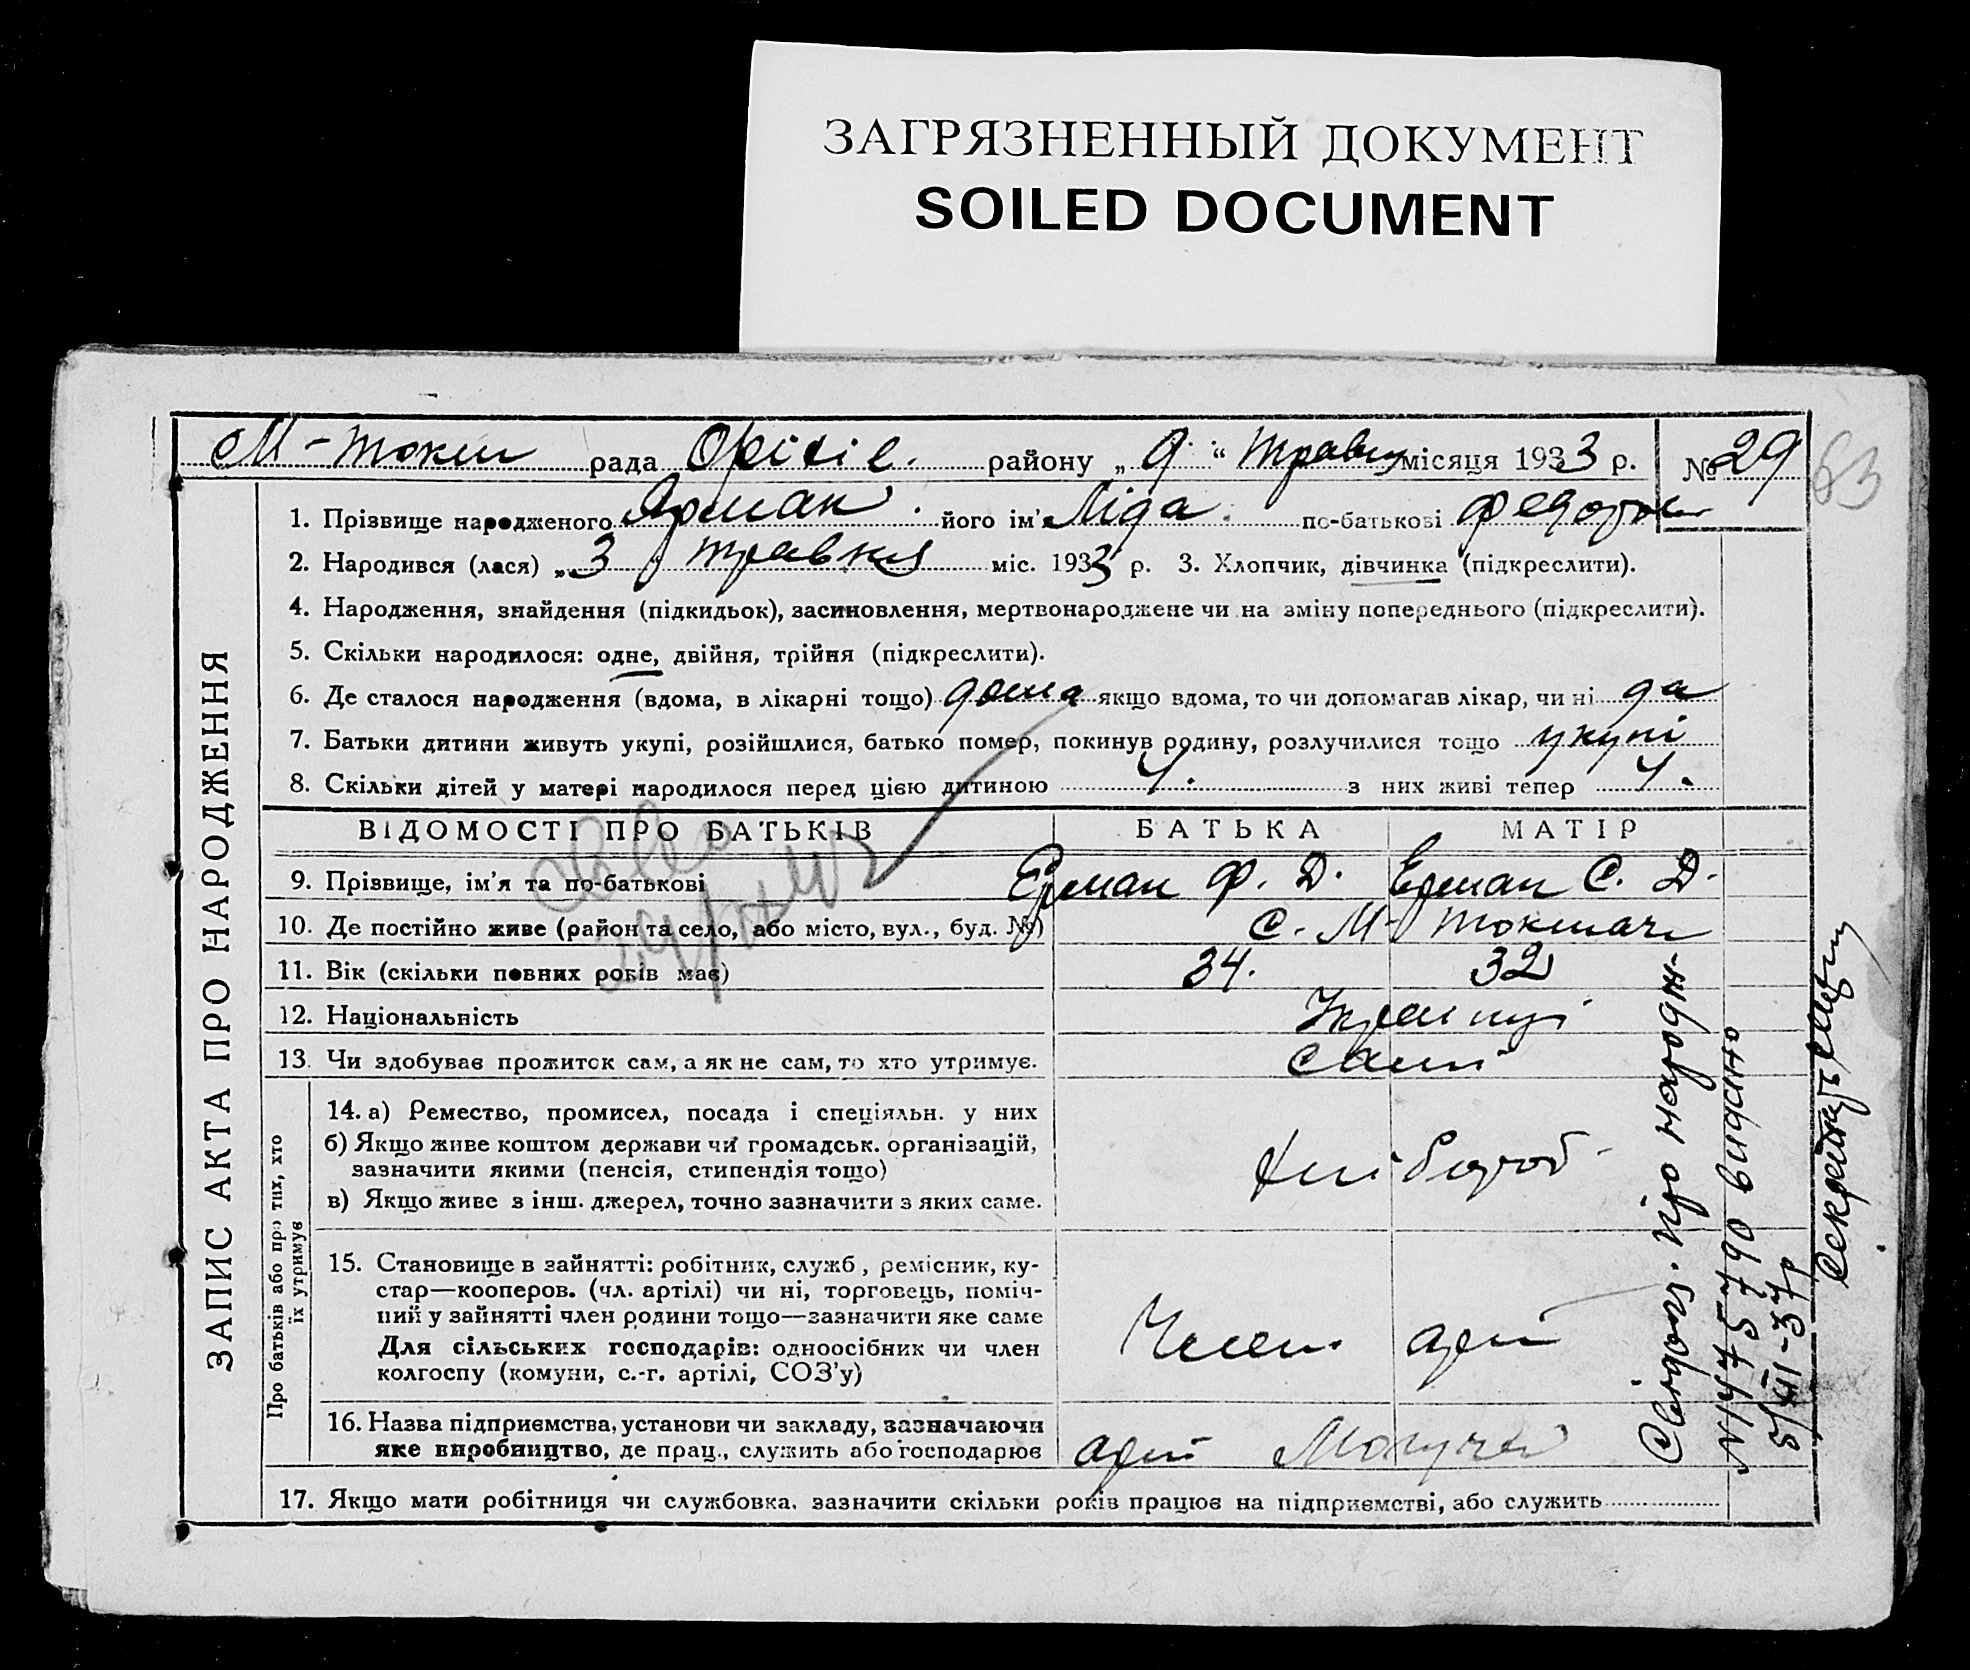 ЗАГРЯЗНЕННЫЙ ДОКУМЕНТ
SOILED DOCUMENT
М-Токм рада Оріхів. району „9“ травня місяця 1933 р. № 29
83
ЗАПИС АКТА ПРО НАРОДЖЕННЯ
1. Прізвище народженого Ярман. його ім'я Ліда. по-батькові Федоров
2. Народився (лася) „3 травня міс. 1933 р. 3. Хлопчик, дівчинка (підкреслити).
4. Народження, знайдення (підкидьок), засиновлення, мертвонароджене чи на зміну попереднього (підкреслити).
5. Скільки народилося: одне, двійня, трійня (підкреслити).
6. Де сталося народження (вдома, в лікарні тощо) дома якщо вдома, то чи допомагав лікар, чи ні да
7. Батьки дитини живуть укупі, розійшлися, батько помер, покинув родину, розлучилися тощо укупі
8. Скільки дітей у матері народилося перед цією дитиною 4. з них живі тепер 4.
ВІДОМОСТІ ПРО БАТЬКІВ БАТЬКА МАТІР
9. Прізвище, ім'я та по-батькові Ерман Ф. Д. Ерман С. Д.
10. Де постійно живе (район та село, або місто, вул., буд. №) С. М-Токмач
11. Вік (скільки повних років має) 34. 32
12. Національність Українці
13. Чи здобуває прожиток сам, а як не сам, то хто утримує. сами
Про батьків або про тих, хто
їх утримує
14. а) Ремество, промисел, посада і спеціяльн. у них
б) Якщо живе коштом держави чи громадськ. організацій,
зазначити якими (пенсія, стипендія тощо)
в) Якщо живе з інш. джерел, точно зазначити з яких саме.
хлібороб
15. Становище в зайнятті: робітник, служб, ремісник, ку-
стар—кооперов. (чл. артілі) чи ні, торговець, поміч-
ний у зайнятті член родини тощо—зазначити яке саме
Для сільських господарів: одноосібник чи член
колгоспу (комуни, с.-г. артілі, СОЗ'у)
Член арті
16. Назва підприємства, установи чи закладу, зазначаючи
яке виробництво, де прац., служить або господарює
арті
17. Якщо мати робітниця чи службовка, зазначити скільки років працює на підприємстві, або служить
Свідоц. про народж.
N 1475790 видано
5/XII-37р
Секретарь